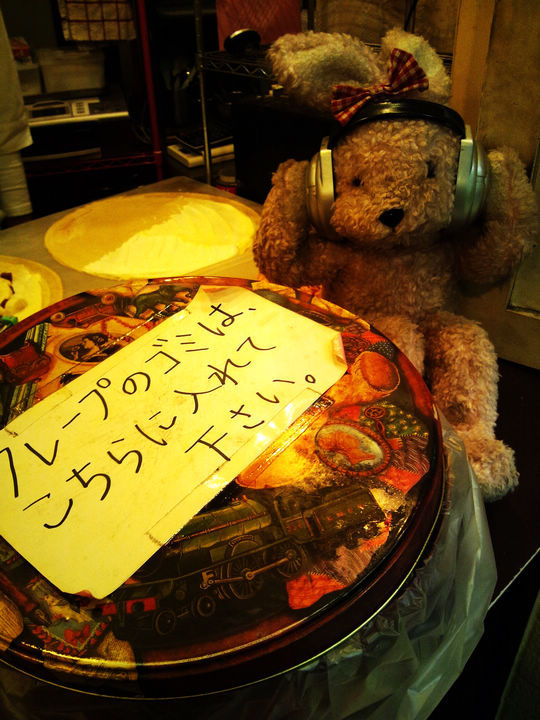 クレープのゴミは、
こちらに入れて
下さい。